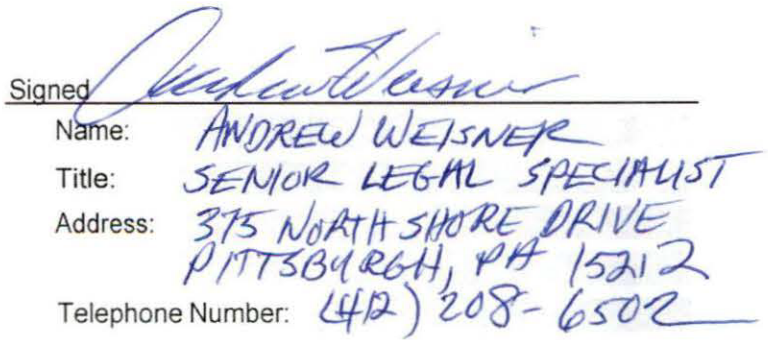 Signed Andrew Weisner
Name: ANDREW WEISNER
Title: SENIOR LEGAL SPECIALIST
Address: 375 NORTH SHORE DRIVE
PITTSBURGH, PA 15212
Telephone Number: (412) 208-6502